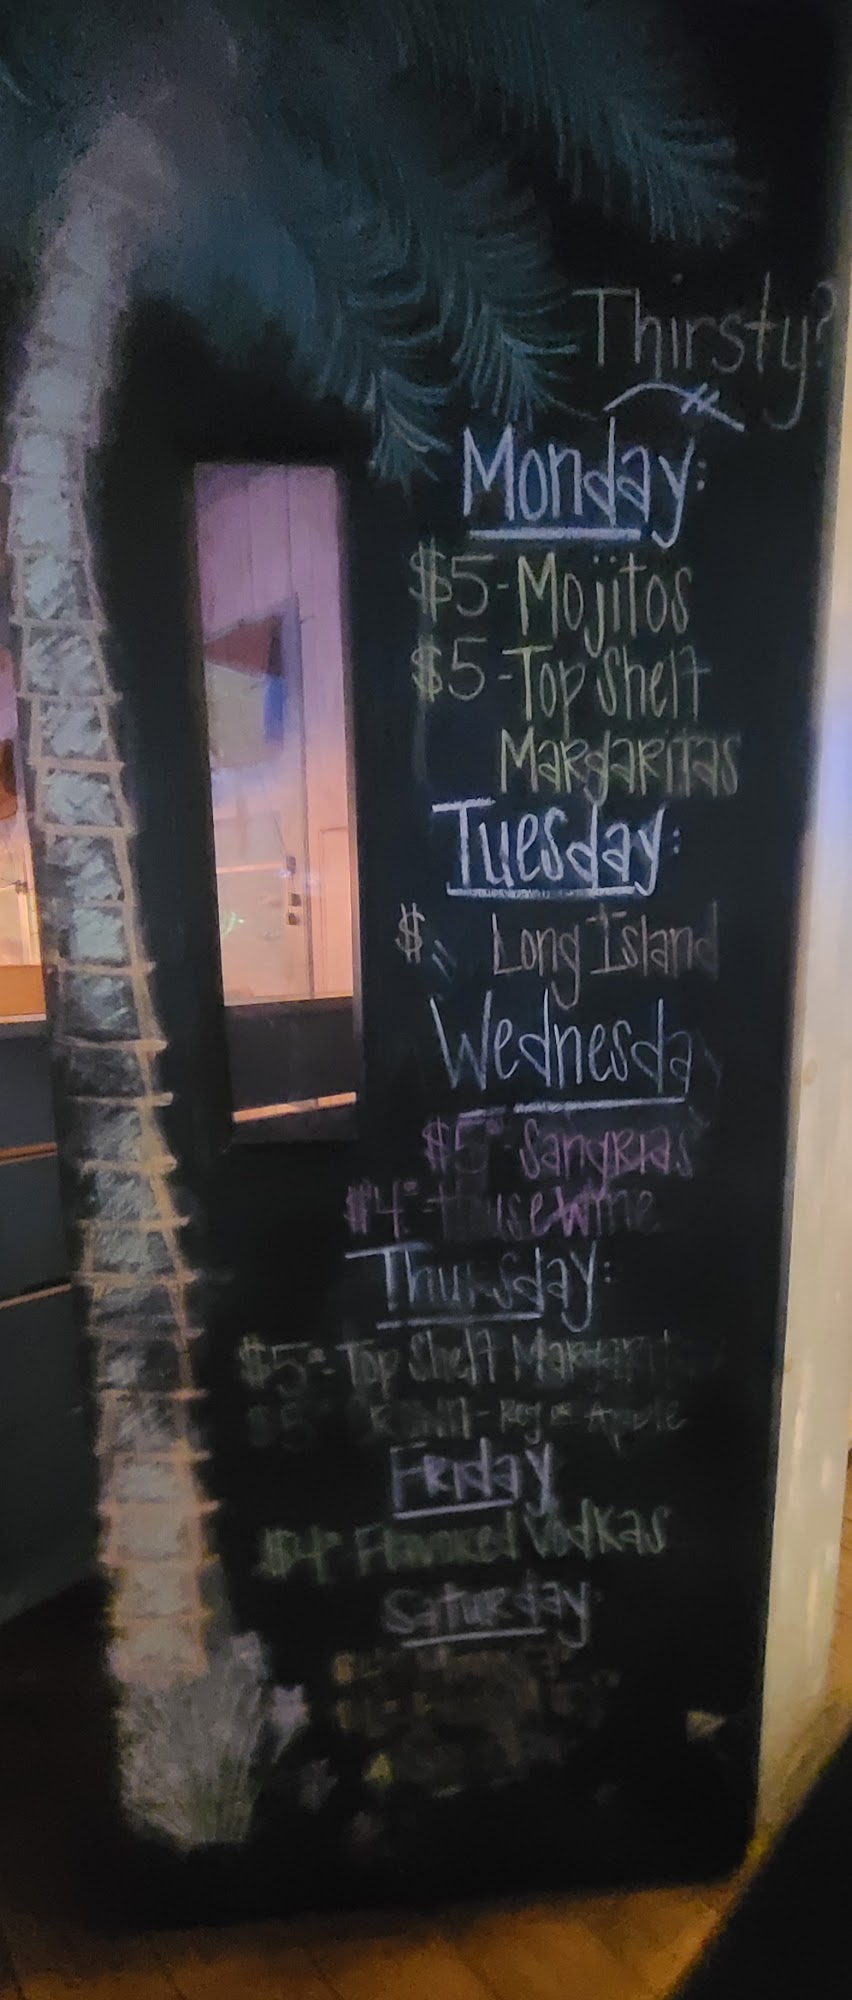 Thirsty?
Monday:
$5-Mojitos
$5-Top Shelf
Margaritas
Tuesday:
$ Long Island
Wednesda
$5- Sangrias
$4- House Wine
Thursday:
$5- Top Shelf Margarit
$5 Crown-Reg or Apple
Friday
$4 Flavored Vodkas
Saturday: